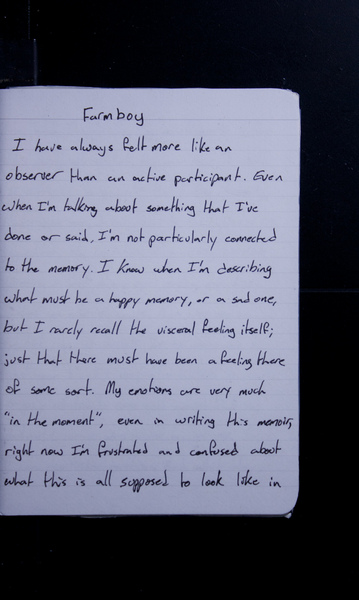 Farmboy
I have always felt more like an
observer than an active participant. Even
when I'm talking about something that I've
done or said, I'm not particularly connected
to the memory. I know when I'm describing
what must be a happy memory, or a sad one,
but I rarely recall the visceral feeling itself;
just that there must have been a feeling there
of some sort. My emotions are very much
"in the moment", even in writing this memoir,
right now I'm frustrated and confused about
what this is all supposed to look like in